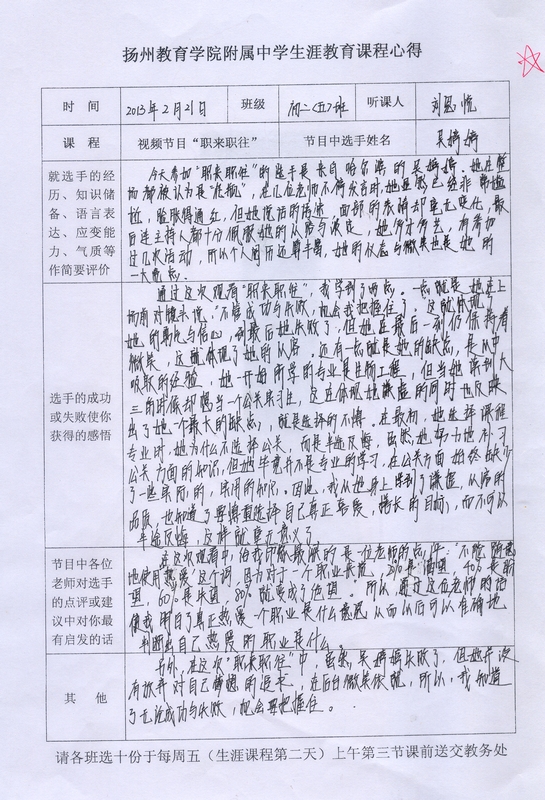 扬州教育学院附属中学生涯教育课程心得
时 间 2013年2月21日 班级 初二〈五〉班 听课人 刘思悦
课 程 视频节目“职来职往” 节目中选手姓名 吴婧婧
就选手的经历、知识储备、语言表达、应变能力、气质等作简要评价
今天参加“职来职往”的选手是来自哈尔滨的吴婧婧。她在整
场都被认为是“淮驼”,在几位老师不
脸胀得通红,但她说话的语速,面部的表情却毫无变化,最
后连主持人都十分佩服她的从容与淡定,她
过几次活动,所以个人阅历还算丰富,她的仪态与微笑也是她的
一大亮点。
选手的成功或失败使你获得的感悟
通过这次观看“职来职往”,我学到了两点。一点就是她在上
场前对镜头说:“不管成功与失败,机会我把握住了。”这就体现了
她的勇气与信心,到最后她失败了,但她在最后一刻仍保持着
微笑,这就体现了她的从容。还有一点就是她的缺点,是从中
吸取的经验,她一开始所学的专业是生物工程,但当她读到大
三的时候却想当一个公关实习生,这在体现她谦虚的同时也反映
出了她一个最大的缺点,就是选择的不慎。在最初,她选择课程
专业时,她为什么不选择公关,而是半途反悔。虽然,她努力地补习
公关方面的知识,但她毕竟并不是专业的学习,在公关方面始终缺少
了一些实际的,实用的知识。因此,我从她身上学到了谦虚,从容的
品质,也知道了要慎重选择自己真正喜爱,擅长的目标,而不可以
半途反悔,这样就毫无意义了。
节目中各位老师对选手的点评或建议中对你最有启发的话
在这次观看中,给我印象最深的是一位老师的点评:“不能随意
地使用热爱这个词,因为对于一个职业来说,20%是渴望,40%是期
望,60%是失望,80%就变成了绝望。”所以,通过这位老师的话
使我明白了真正热爱一个职业是什么意思,从而以后可以准确地
判断出自己热爱的职业是什么。
其 他
另外,在这次“职来职往”中,虽然,吴婧婧失败了,但她并没
有放弃对自己梦想的追求,在后台微笑依旧,所以,我知道
了无论成功与失败,机会要把握住。
请各班选十份于每周五(生涯课程第二天)上午第三节课前送交教务处